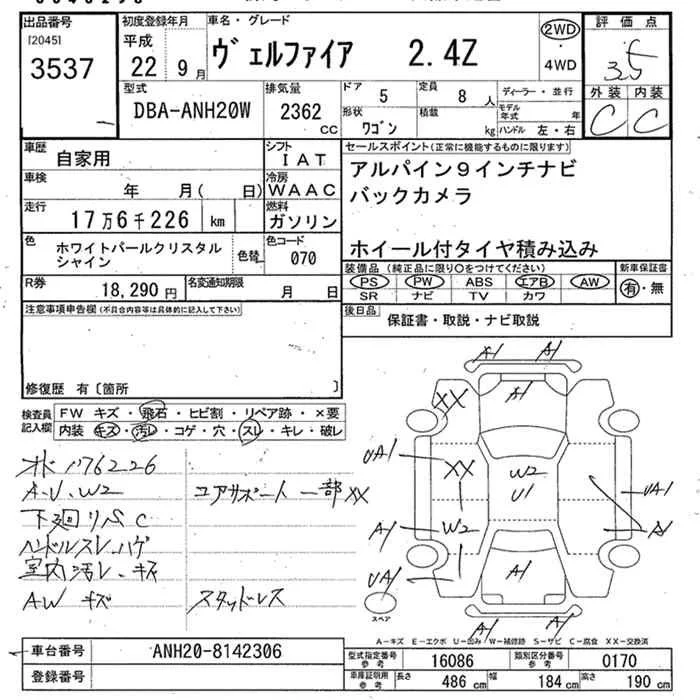 出品番号
[2045]
3537
初度登録年月
平成
22年9月
車名・グレード
ヴェルファイア 2.4Z
2WD
・
4WD
評価点
3.5
外装 内装
C C
型式
DBA-ANH20W
排気量
2362
cc
ドア 5
定員 8人
ディーラー・並行
形状 ワゴン
積載 kg
モデル年式 年
ハンドル 左・右
車歴 自家用
シフト IAT
車検 年 月( 日)
冷房 WAAC
走行 17万6千226 km
燃料 ガソリン
色 ホワイトパールクリスタルシャイン
色替
色コード 070
R券 18,290円
名変通知期限 月 日
セールスポイント(正常に機能するものに限ります)
アルパイン9インチナビ
バックカメラ
ホイール付タイヤ積み込み
装備品(純正品に限り○をつけてください)
新車保証書
PS PW ABS エアB AW
SR ナビ TV カワ
有・無
後日品 保証書・取説・ナビ取説
注意事項申告欄(不具合内容等は具体的に記入して下さい)
修復歴 有〔箇所 〕
検査員記入欄
FW キズ・飛石・ヒビ割・リペア跡・×要
内装 キズ・汚レ・コゲ・穴・スレ・キレ・破レ
オド176226
A・U、W2 コアサポート一部XX
下廻リ C
ハンドルスレ、ハゲ
室内汚レ・キズ
AW キズ スタッドレス
A1 A1
A1
XX
UA1 XX W2 U1 UA1
A1 W2 A1
UA1 A1
A1 A1
スペア
A-キズ E-エクボ U-凹み W-補修跡 S-サビ C-腐食 XX-交換済
車台番号 ANH20-8142306
登録番号
型式指定番号参考 16086
類別区分番号参考 0170
車庫証明用参考 長さ 486 cm 幅 184 cm 高さ 190 cm